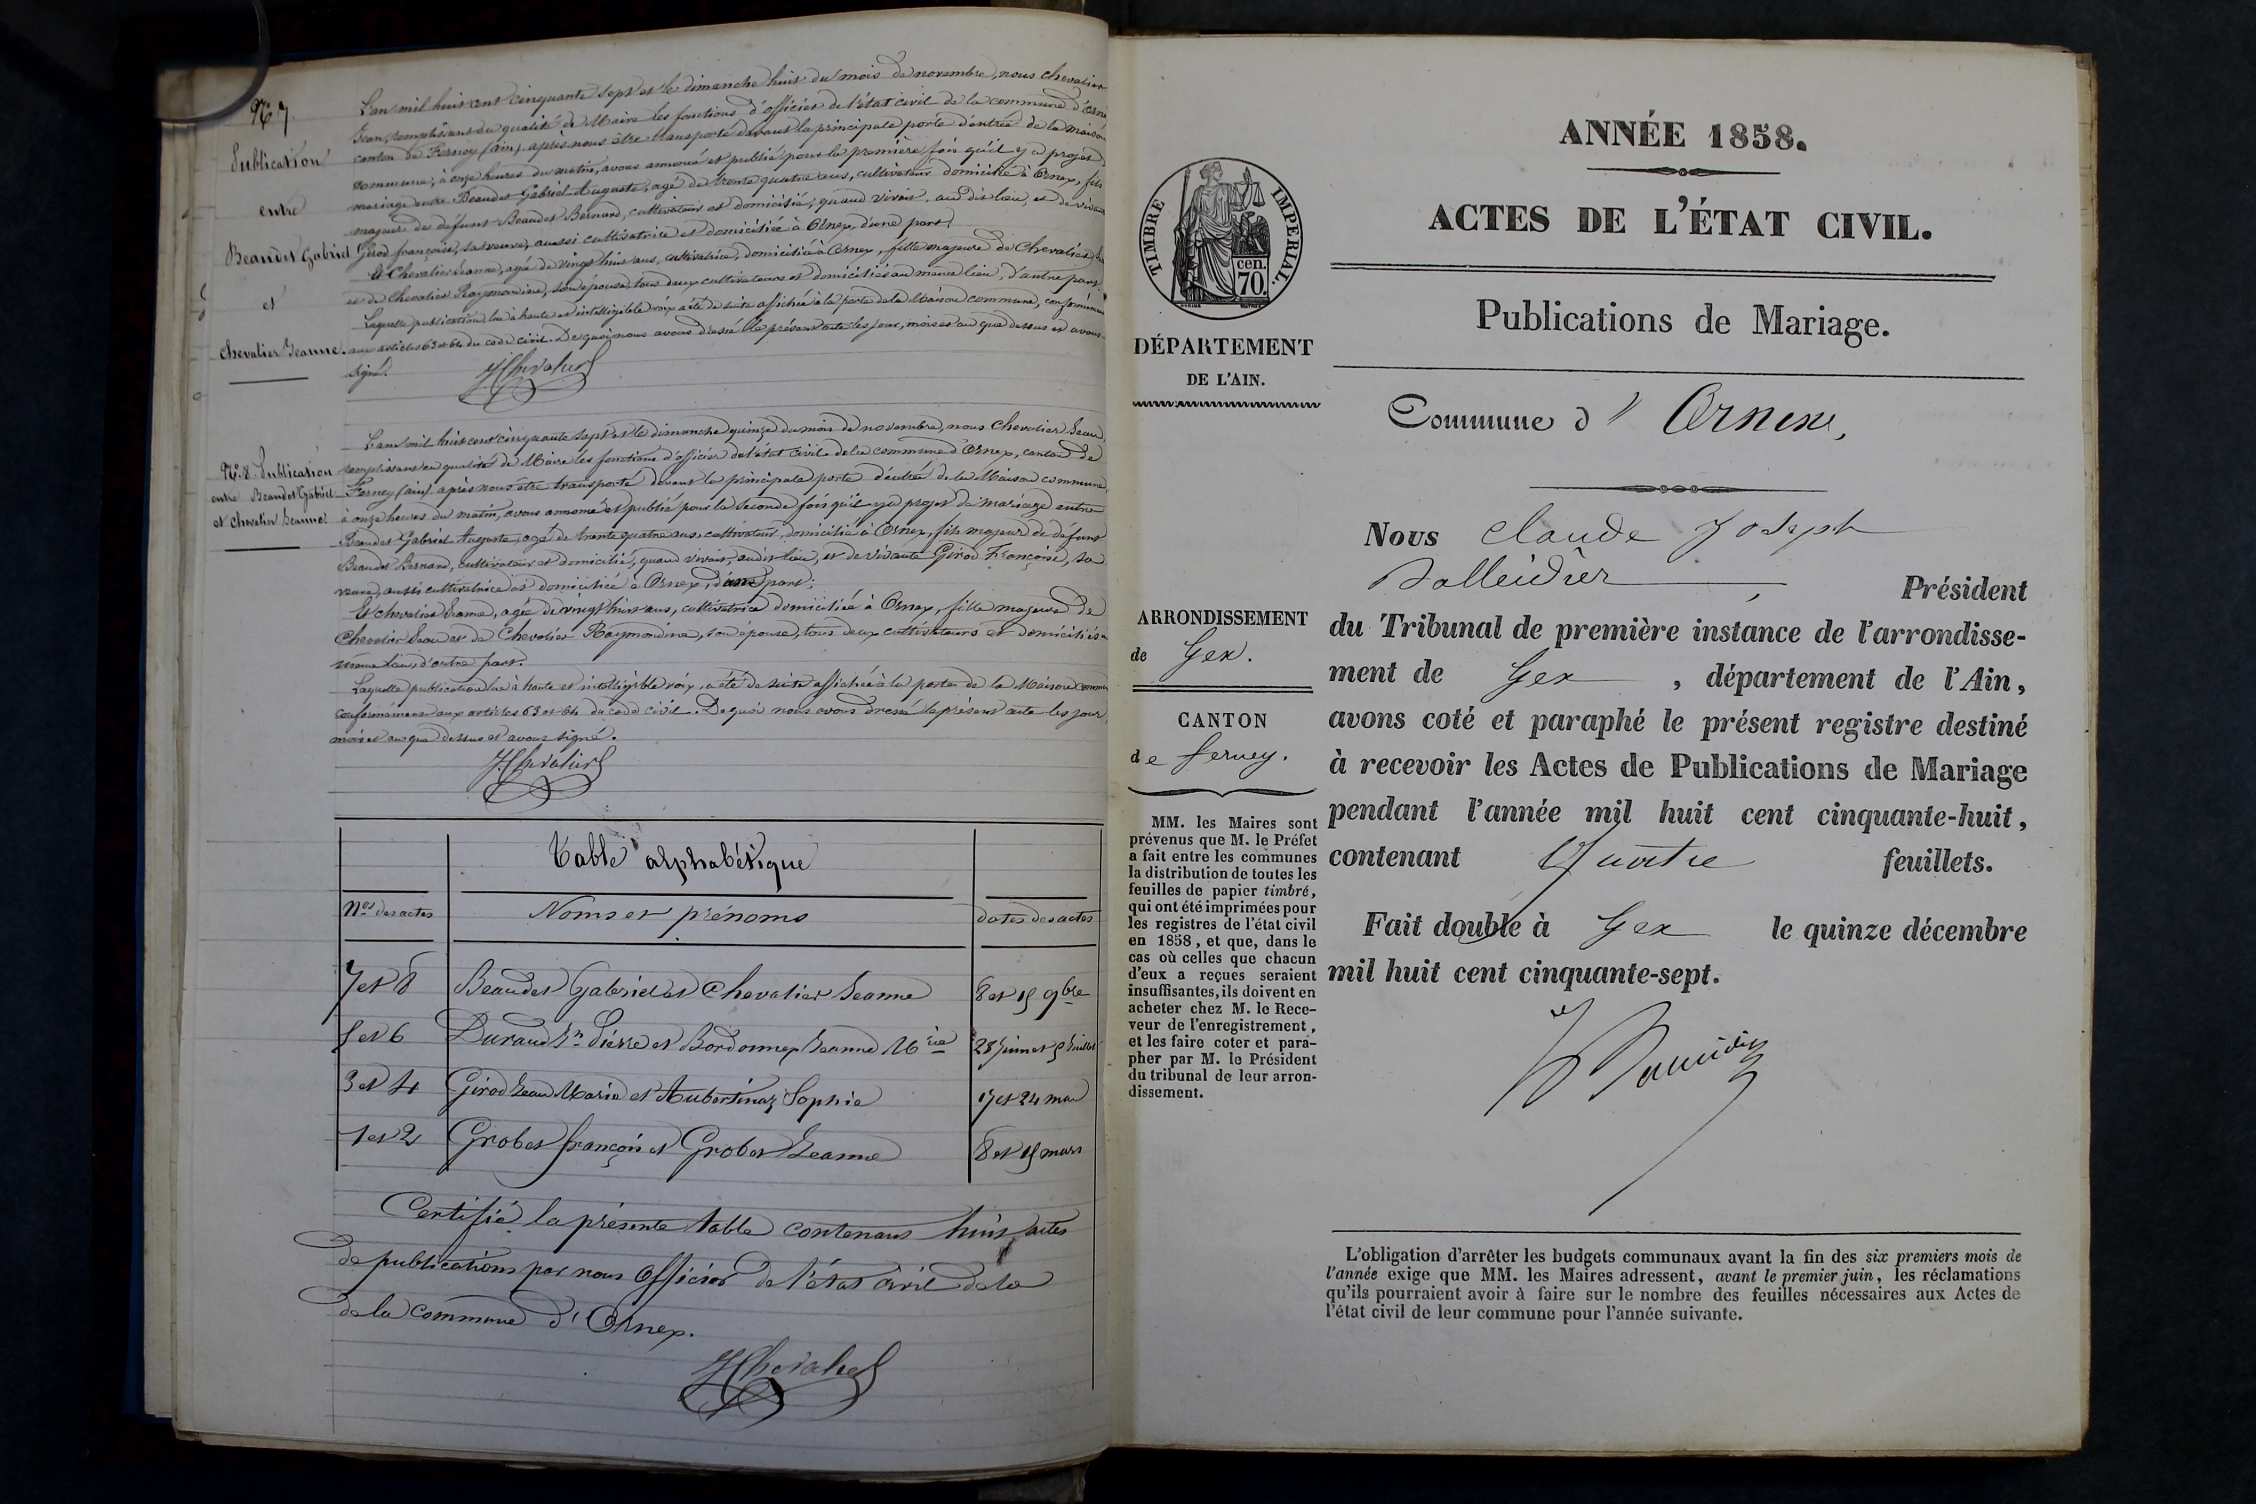 N° 7.
Publication
entre
Beaudet Gabriel
et
Chevalier Jeanne.
L'an mil huit cent cinquante sept et le dimanche huit du mois de novembre, nous Chevalier
Jean, remplissant en qualité de Maire les fonctions d'officier de l'état civil de la commune d'Ornex
canton de Ferney (ain) après nous être transporté devant la principale porte d'entrée de la maison
commune, à onze heures du matin, avons annoncé et publié pour la première fois qu'il y a projet de
mariage entre Beaudet Gabriel Auguste, agé de trente quatre ans, cultivateur domicilié à Ornex, fils
majeur de défunt Beaudet Bernard, cultivateur et domicilié, quand vivait, au dit lieu, et de vivante
Girod françoise, sa veuve, aussi cultivatrice et domiciliée à Ornex, d'une part;
Et Chevalier Jeanne, agée de vingt huit ans, cultivatrice, domiciliée à Ornex, fille majeure de Chevalier Jean
et de Chevalier Raymondine, son épouse, tous deux cultivateurs et domiciliés au même lieu, d'autre part.
Laquelle publication lue à haute et intelligible voix a été de suite affichée à la porte de la Maison commune, conformément
aux articles 63 et 64 du code civil. De quoi nous avons dressé le présent acte les jour, mois et an que dessus et avons
signé.
J Chevalier
N°. 8. Publication
entre Beaudet Gabriel
et Chevalier Jeanne
L'an mil huit cent cinquante sept et le dimanche quinze du mois de novembre, nous Chevalier Jean,
remplissant en qualité de Maire les fonctions d'officier de l'état civil de la commune d'Ornex, canton de
Ferney (ain) après nous être transporté devant la principale porte d'entrée de la Maison commune,
à onze heures du matin, avons annoncé et publié pour la seconde fois qu'il y a projet de mariage entre
Beaudet Gabriel Auguste, agé de trente quatre ans, cultivateur, domicilié à Ornex, fils majeur de défunt
Beaudet Bernard, cultivateur et domicilié, quand vivait, au dit lieu, et de vivante Girod Françoise, sa
veuve, aussi cultivatrice et domiciliée à Ornex, d'une part;
Et chevalier Jeanne, agée de vingt huit ans, cultivatrice domiciliée à Ornex, fille majeure de
Chevalier Jean et de Chevalier Raymondine, son épouse, tous deux cultivateurs et domiciliés au
même lieu, d'autre part.
Laquelle publication lue à haute et intelligible voix, a été de suite affichée à la porte de la Maison commune
conformément aux articles 63 et 64 du code civil. De quoi nous avons dressé le présent acte les jour,
mois et an que dessus et avons signé.
J. Chevalier
Table alphabétique
Nos des actes Noms et prénoms dates des actes
7 et 8 Beaudet Gabriel et Chevalier Jeanne 8 et 15 9bre
5 et 6 Durand Jn Pierre et Bordonnex Jeanne Mrie 28 Juin et 5 Juillet
3 et 4 Girod Jean Marie et Aubertinaz Sophie 17 et 24 mai
1 et 2 Grobet françois et Grobet Jeanne 8 et 15 mars
Certifié la présente table contenant huit actes
de publications par nous officier de l'état civil de la
de la commune d'Ornex.
J Chevalier
TIMBRE IMPERIAL.
cen.
70.
DÉPARTEMENT
DE L'AIN.
ARRONDISSEMENT
de Gex.
CANTON
de ferney.
MM. les Maires sont
prévenus que M. le Préfet
a fait entre les communes
la distribution de toutes les
feuilles de papier timbré,
qui ont été imprimées pour
les registres de l'état civil
en 1858, et que, dans le
cas où celles que chacun
d'eux a reçues seraient
insuffisantes, ils doivent en
acheter chez M. le Rece-
veur de l'enregistrement,
et les faire coter et para-
pher par M. le Président
du tribunal de leur arron-
dissement.
ANNÉE 1858.
ACTES DE L'ÉTAT CIVIL.
Publications de Mariage.
Commune d'Ornex,
Nous Claude Joseph
Balleidier, Président
du Tribunal de première instance de l'arrondisse-
ment de Gex, département de l'Ain,
avons coté et paraphé le présent registre destiné
à recevoir les Actes de Publications de Mariage
pendant l'année mil huit cent cinquante-huit,
contenant Quatre feuillets.
Fait double à Gex le quinze décembre
mil huit cent cinquante-sept.
L'obligation d'arrêter les budgets communaux avant la fin des six premiers mois de
l'année exige que MM. les Maires adressent, avant le premier juin, les réclamations
qu'ils pourraient avoir à faire sur le nombre des feuilles nécessaires aux Actes de
l'état civil de leur commune pour l'année suivante.